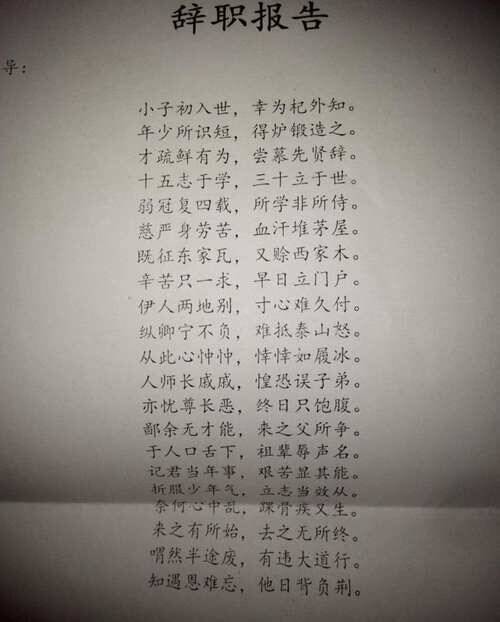 辞职报告
导：
小子初入世，幸为杞外知。
年少所识短，得炉锻造之。
才疏鲜有为，尝慕先贤辞。
十五志于学，三十立于世。
弱冠复四载，所学非所侍。
慈严身劳苦，血汗堆茅屋。
既征东家瓦，又赊西家木。
辛苦只一求，早日立门户。
伊人两地别，寸心难久付。
纵卿宁不负，难抵泰山怒。
从此心忡忡，悻悻如履冰。
人师长戚戚，惶恐误子弟。
亦忧尊长恶，终日只饱腹。
鄙余无才能，来之父所争。
于人口舌下，祖辈辱声名。
记君当年事，艰苦显其能。
折服少年气，立志当效从。
奈何心中乱，踝骨疾又生。
来之有所始，去之无所终。
喟然半途废，有违大道行。
知遇恩难忘，他日背负荆。